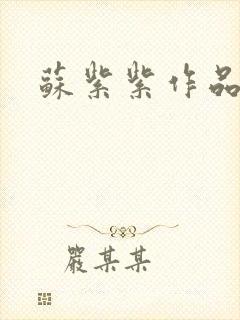 蘇紫紫作品
嚴某某